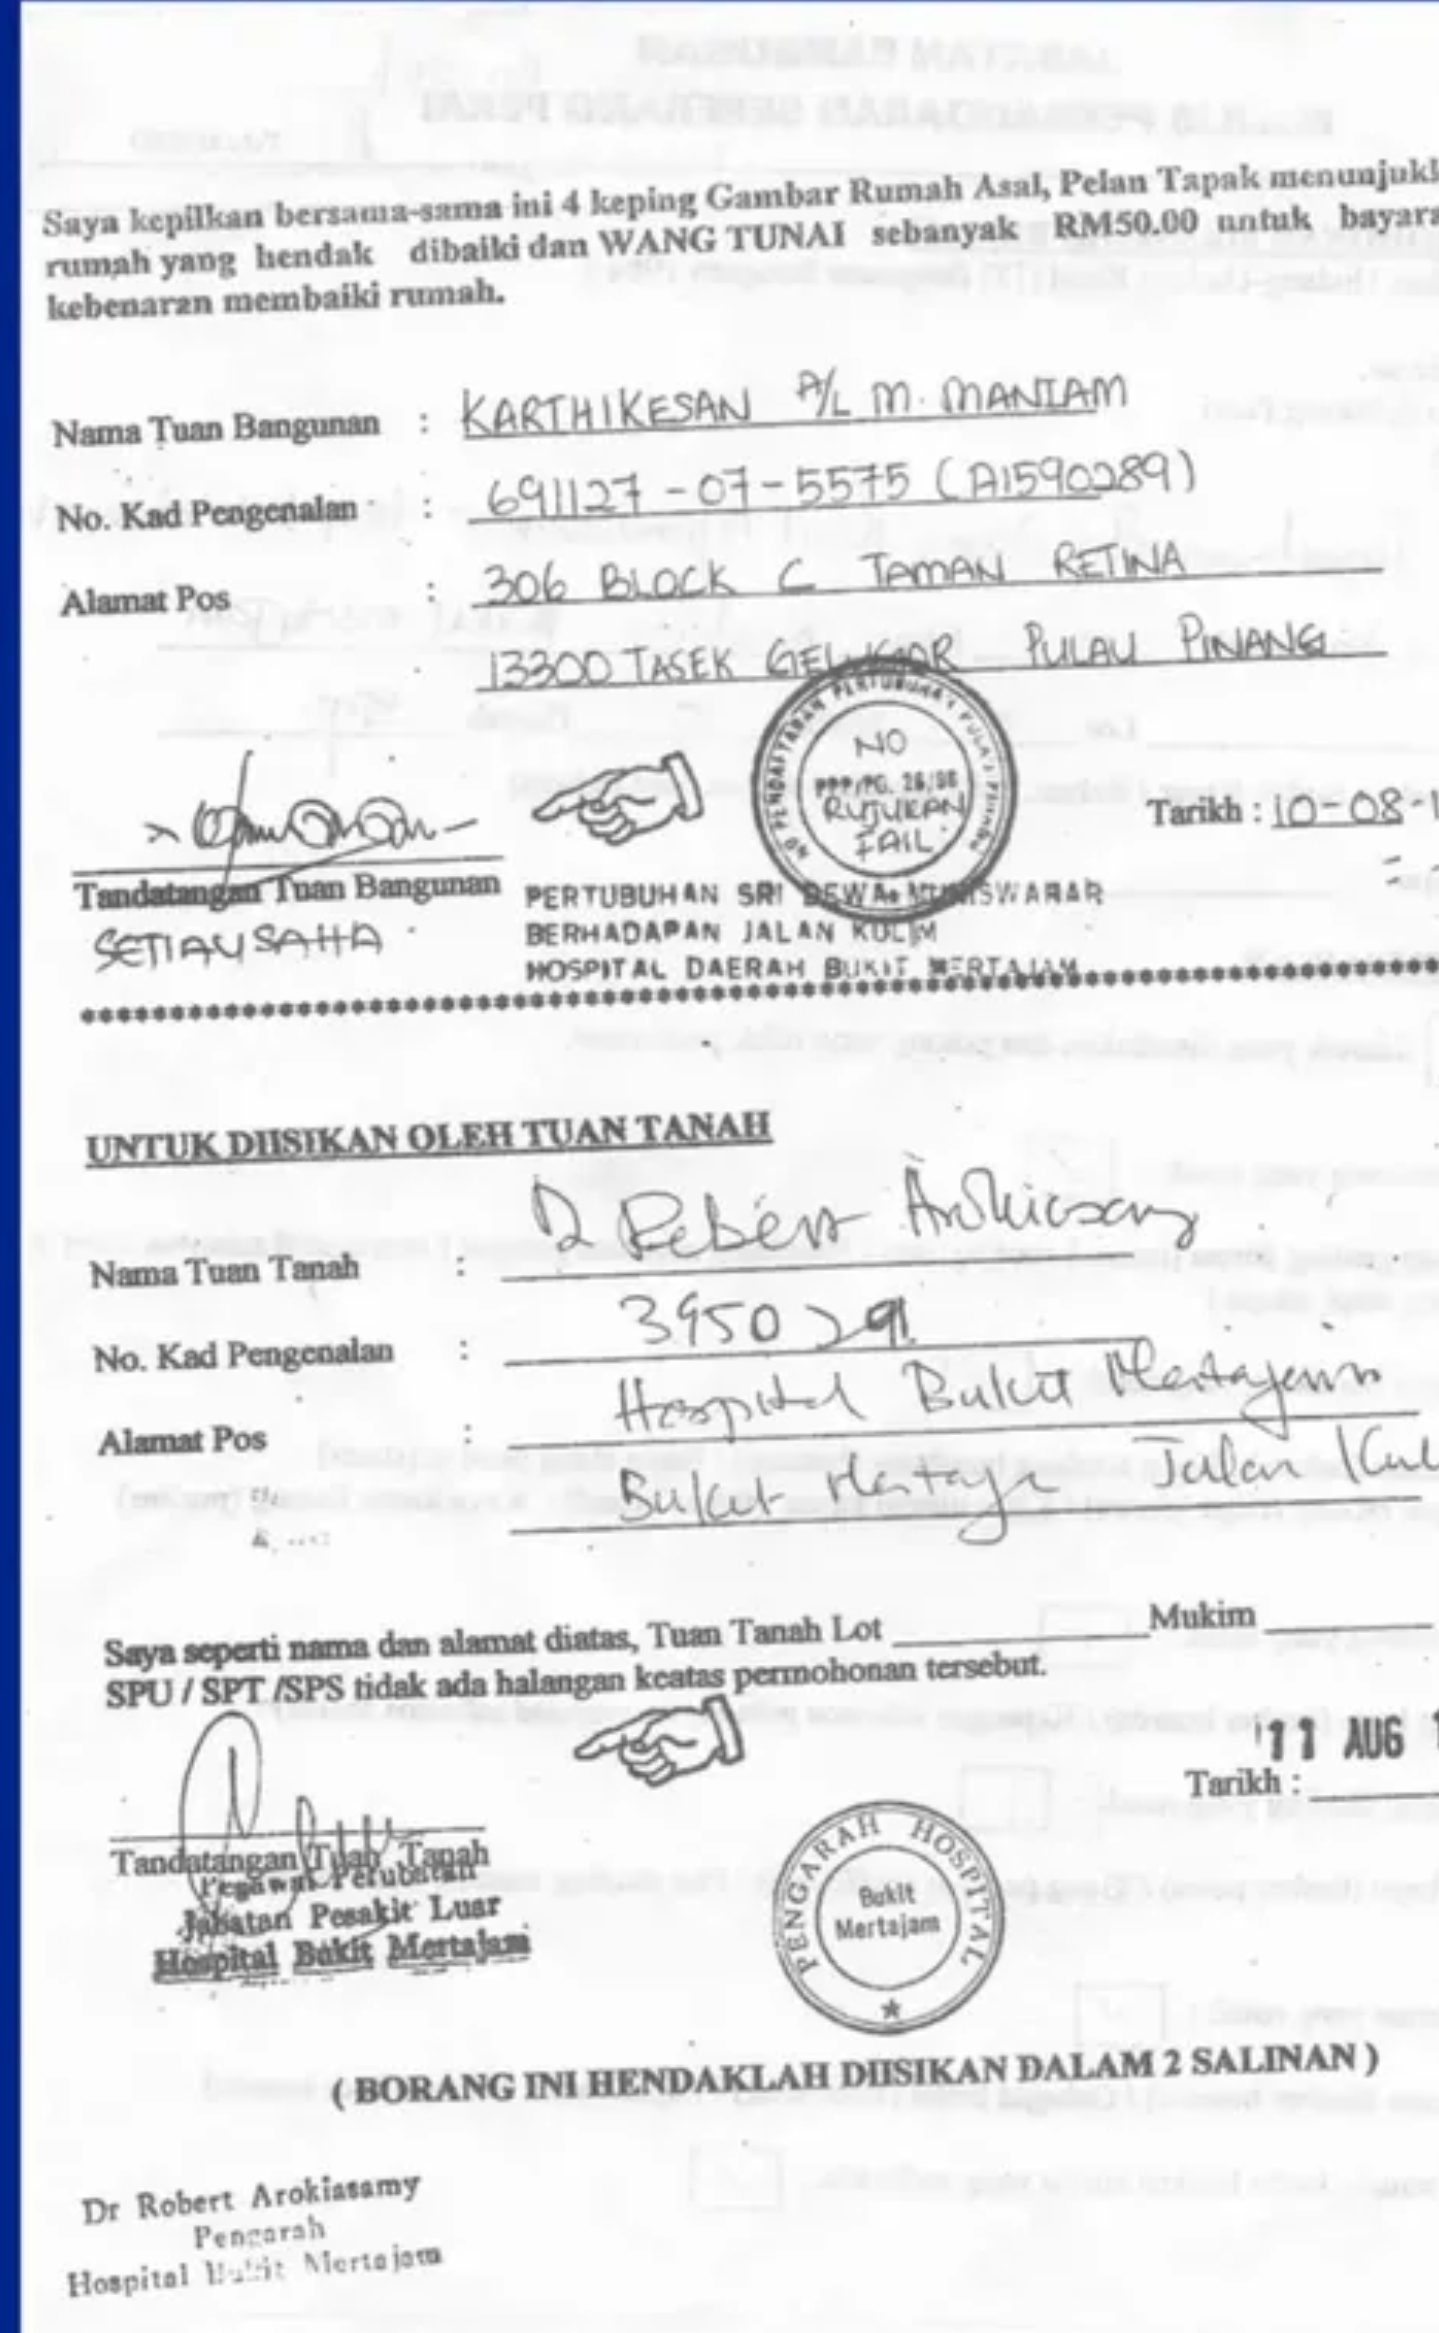 Saya kepilkan bersama-sama ini 4 keping Gambar Rumah Asal, Pelan Tapak
rumah yang hendak dibaiki dan WANG TUNAI sebanyak RM50.00 untuk
kebenaran membaiki rumah.
Nama Tuan Bangunan : KARTHIKESAN A/L M. MANIAM
No. Kad Pengenalan : 691127-07-5575 (A1590289)
Alamat Pos : 306 BLOCK C TAMAN RETINA
13300 TASEK GELUGOR PULAU PINANG
NO PENDAFTARAN PERTUBUHAN PULAU PINANG
NO
PPP/PG. 26/98
RUJUKAN
FAIL
Tarikh : 10-08-1
Tandatangan Tuan Bangunan
SETIAUSAHA
PERTUBUHAN SRI DEWA MUNISWARAR
BERHADAPAN JALAN KULIM
HOSPITAL DAERAH BUKIT MERTAJAM
UNTUK DIISIKAN OLEH TUAN TANAH
Nama Tuan Tanah : Dr Robert Arokiasamy
No. Kad Pengenalan : 3950
Alamat Pos : Hospital Bukit Mertajam
Bukit Jalan
Saya seperti nama dan alamat diatas, Tuan Tanah Lot Mukim
SPU / SPT /SPS tidak ada halangan keatas permohonan tersebut.
11 AUG
Tarikh :
Tandatangan Tuan Tanah
Pegawai Perubatan
Jabatan Pesakit Luar
Hospital Bukit Mertajam
PENGARAH HOSPITAL
Bukit
Mertajam
( BORANG INI HENDAKLAH DIISIKAN DALAM 2 SALINAN )
Dr Robert Arokiasamy
Pengarah
Hospital Bukit Mertajam